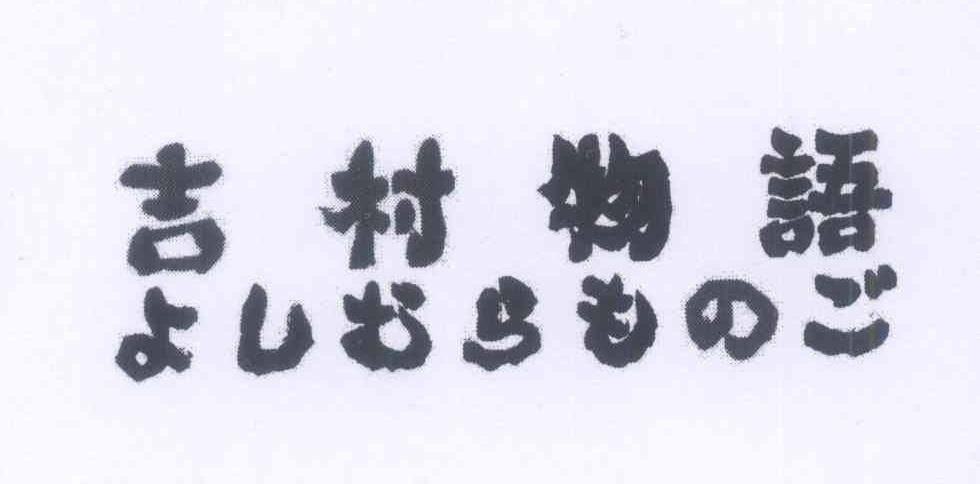 吉村物語
よしむらものご